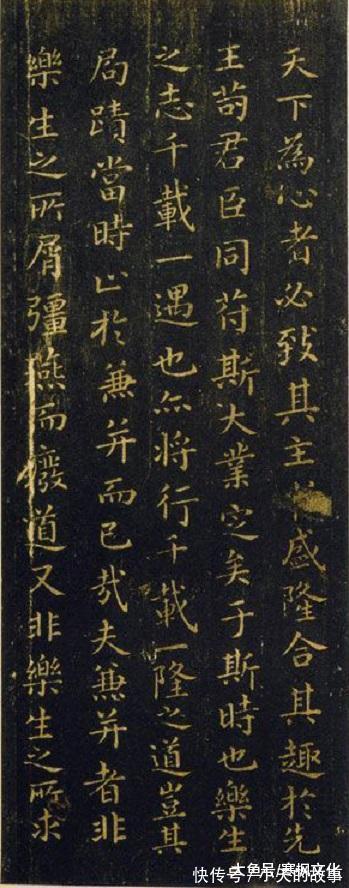 天下為心者必致其主於盛隆合其趣於先
王苟君臣同符斯大業定矣于斯時也樂生
之志千載一遇也亦将行千載一隆之道豈其
局蹟當時止於兼并而已哉夫兼并者非
樂生之所屑彊燕而廢道又非樂生之所求
快传号/小大的故事